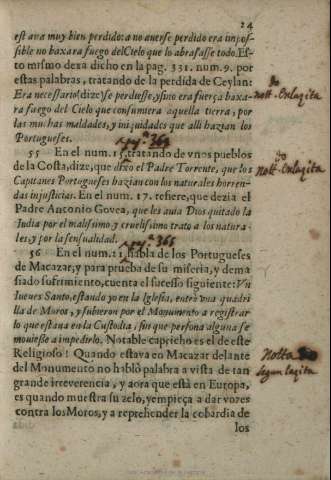 24
est ava muy bien perdido: a no averse perdido era impos-
sible no baxara fuego del Cielo que lo abrasasse todo. Es-
to mismo dexa dicho en la pag. 331. num. 9. por
estas palabras, tratando de la perdida de Ceylan:
Era necessario (dize) se perdiesse, y sino era fuerça baxa-
ra fuego del Cielo que consumiera aquella tierra, por
las muchas maldades, y iniquidades que alli hazian los
Portugueses.
pag.ª 363
55 En el num. 15. tratando de vnos pueblos
de la Costa, dize, que dixo el Padre Torrente, que los
Capitanes Portugueses hazian con los naturales horren-
das injusticias. En el num. 17. refiere, que dezia el
Padre Antonio Govea, que les avia Dios quitado la
India por el malissimo, y cruelissimo trato a los natura-
les, y por la sensualidad.
pag.ª 365
56 En el num. 1. habla de los Portugueses
de Macazar, y para prueba de su miseria, y dema
siado sufrimiento, cuenta el sucesso siguiente: Vn
Iueves Santo, estando yo en la Iglesia, entrò vna quadri
lla de Moros, y subieron por el Monumento a registrar
lo que estava en la Custodia, sin que persona alguna se
moviesse a impedirlo. Notable capricho es el de este
Religioso! Quando estava en Macazar delante
del Monumento no hablò palabra a vista de tan
grande irreverencia, y aora que està en Europa,
es quando muestra su zelo, y empieça a dar vozes
contra los Moros, y a reprehender la cobardia de
los
Notta
Segun la cita